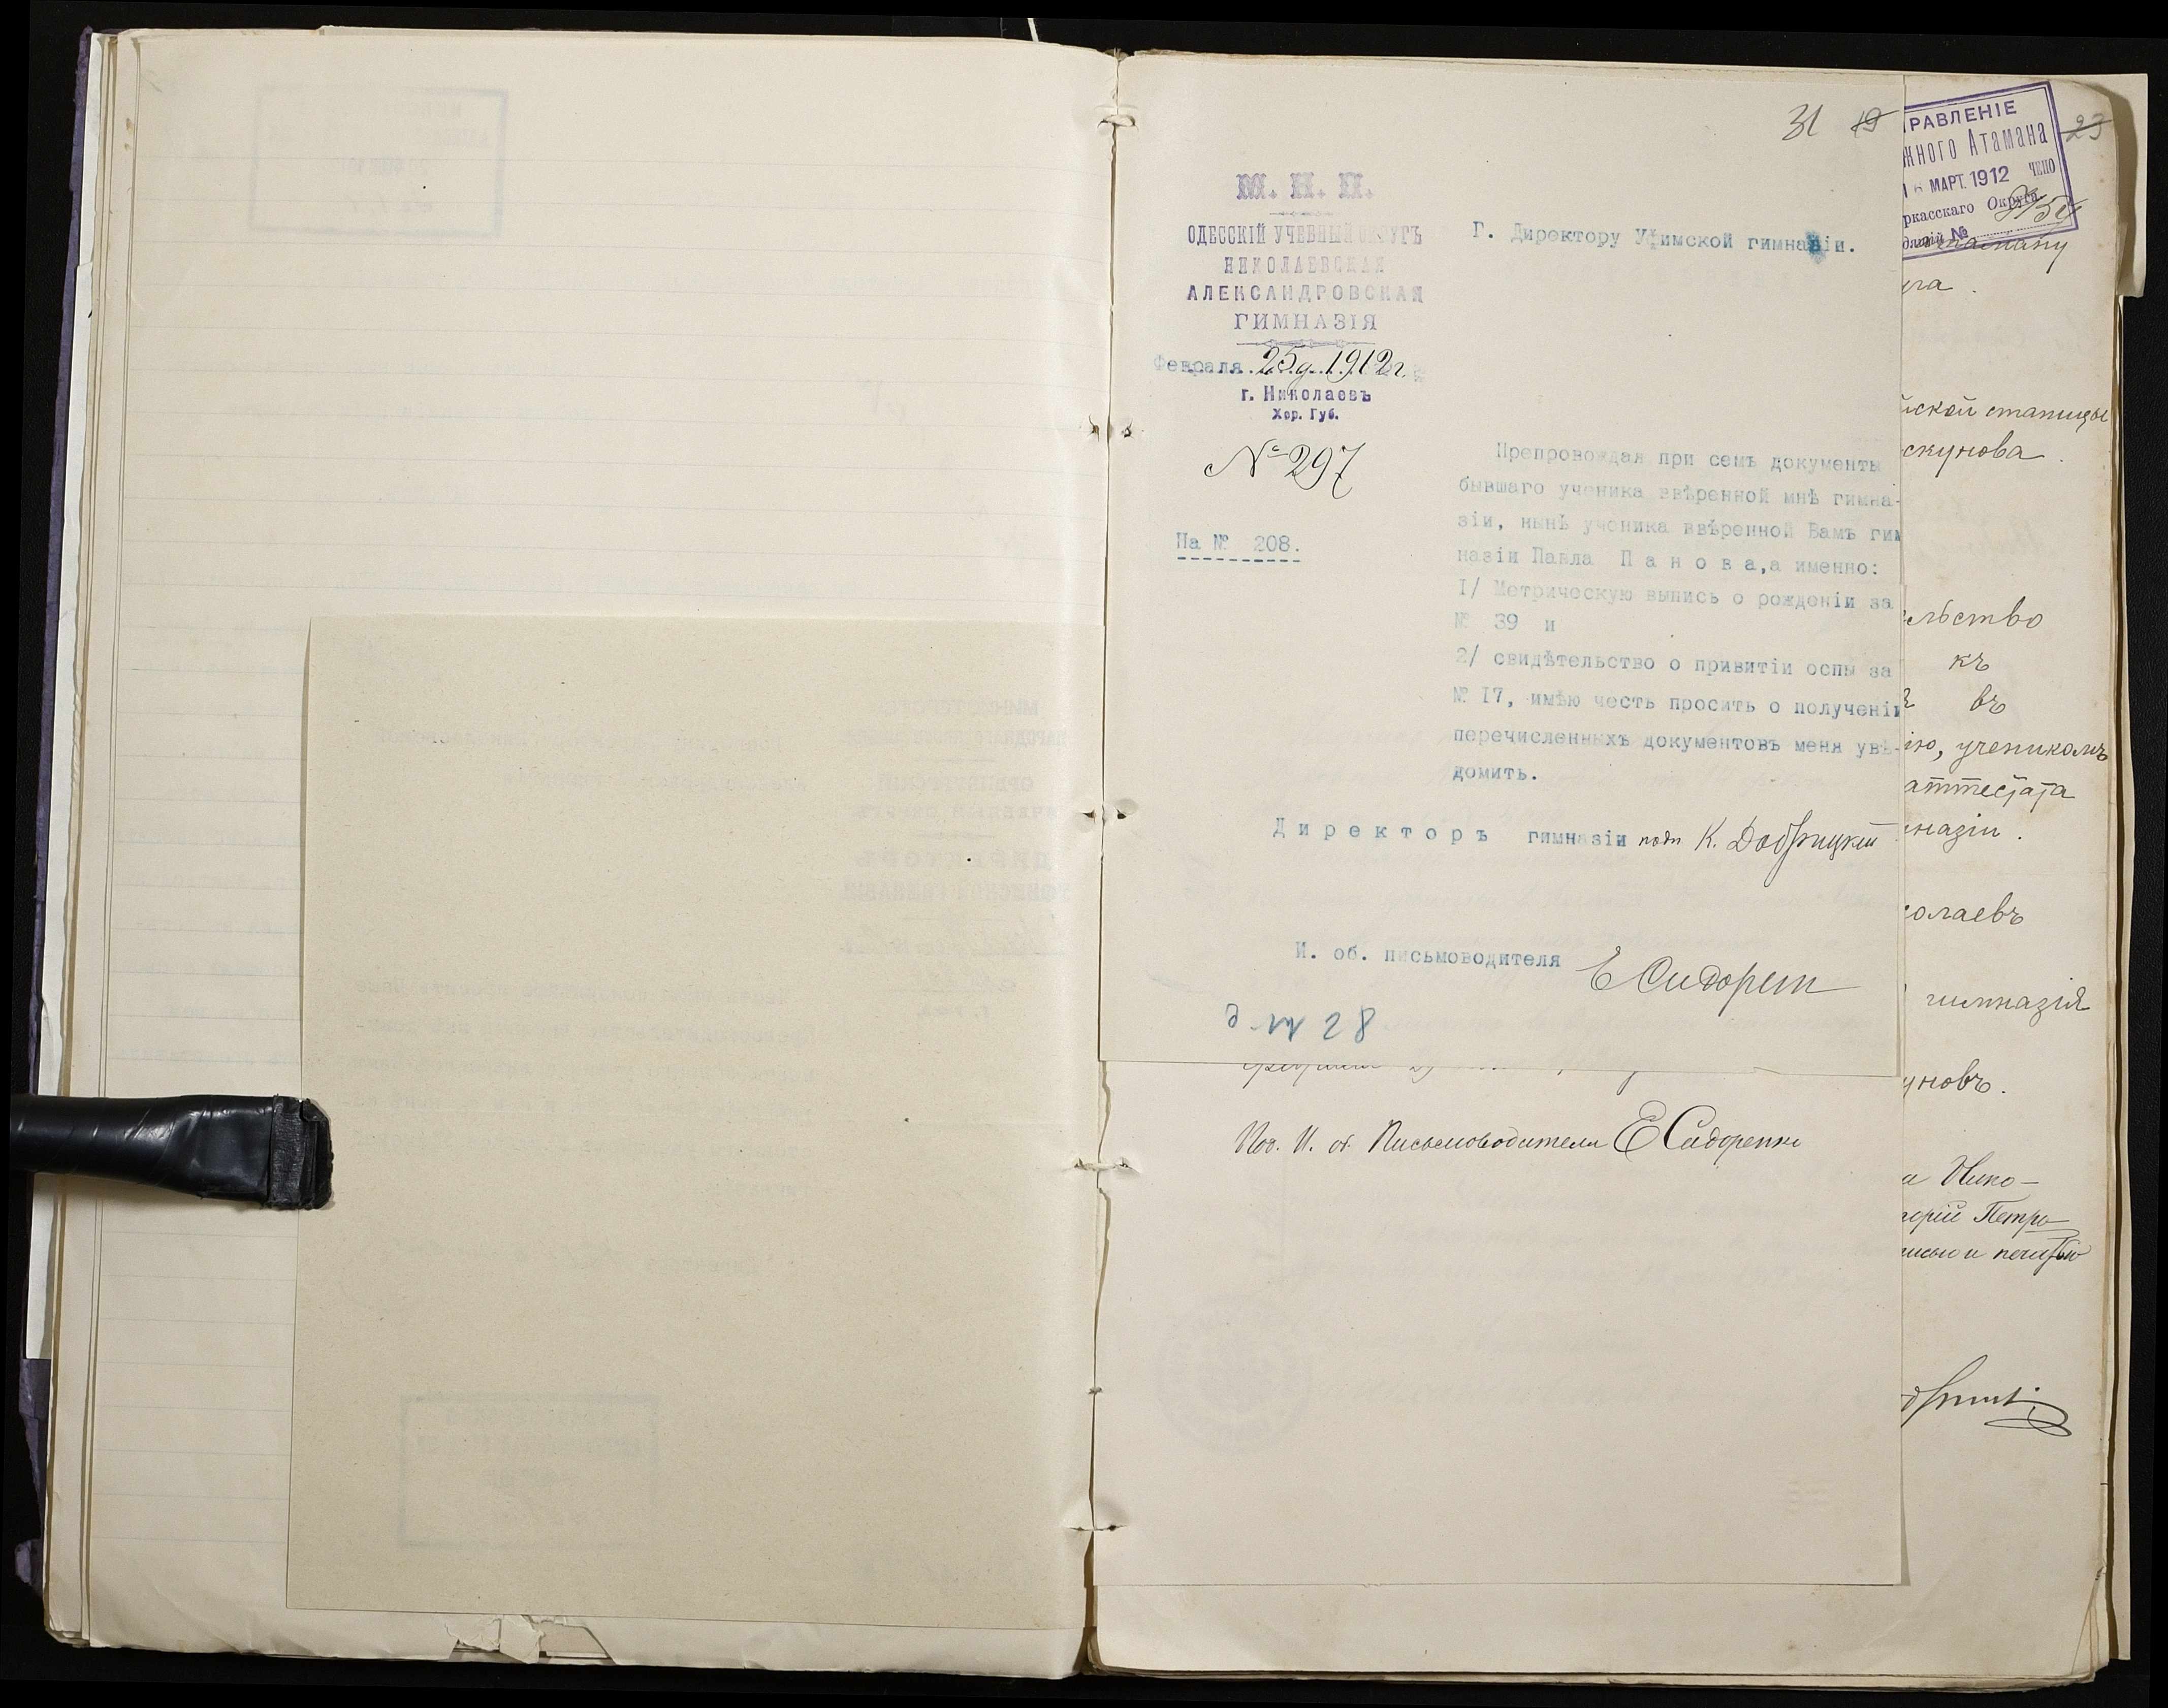 31 19
М. Н. П.
ОДЕССКІЙ УЧЕБНЫЙ ОКРУГЪ
НИКОЛАЕВСКАЯ
АЛЕКСАНДРОВСКАЯ
ГИМНАЗІЯ
Февраля 25 д. 1912 г.
г. Николаевъ
Хер. Губ.
№ 297
На № 208.
Г. Директору Уфимской гимназіи.
Препровождая при семъ документы
бывшаго ученика ввѣренной мнѣ гимна-
зіи, нынѣ ученика ввѣренной Вамъ гим
назіи Павла П а н о в а, а именно:
I/ Метрическую выпись о рожденіи за
№ 39 и
2/ свидѣтельство о привитіи оспы за
№ I7, имѣю честь просить о полученіи
перечисленныхъ документовъ меня увѣ-
домить.
Д и р е к т о р ъ гимназіи подп К. Добрицкій
И. об. письмоводителя Е Сидорен
д. № 28
И. об. Письмоводителя Е Сидоренко
РАВЛЕНІЕ
жного Атамана
МАРТ. 1912
ркасскаго Округа
№
23
атаману
уга.
йской станицы
скунова.
ельство
къ
въ
ію, ученикомъ
аттестата
назіи.
олаевъ
гимназія
уновъ.
а Нико-
горій Петро-
писью и печатью